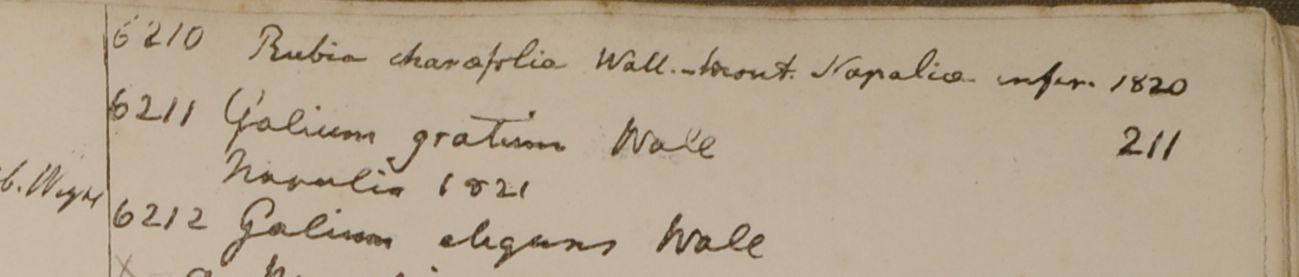 6210 Rubia charæfolia Wall. mont. Napaliæ infer. 1820
6211 Galium gratum Wall 211
Napalia 1821
b. Wight
6212 Galium elegans Wall